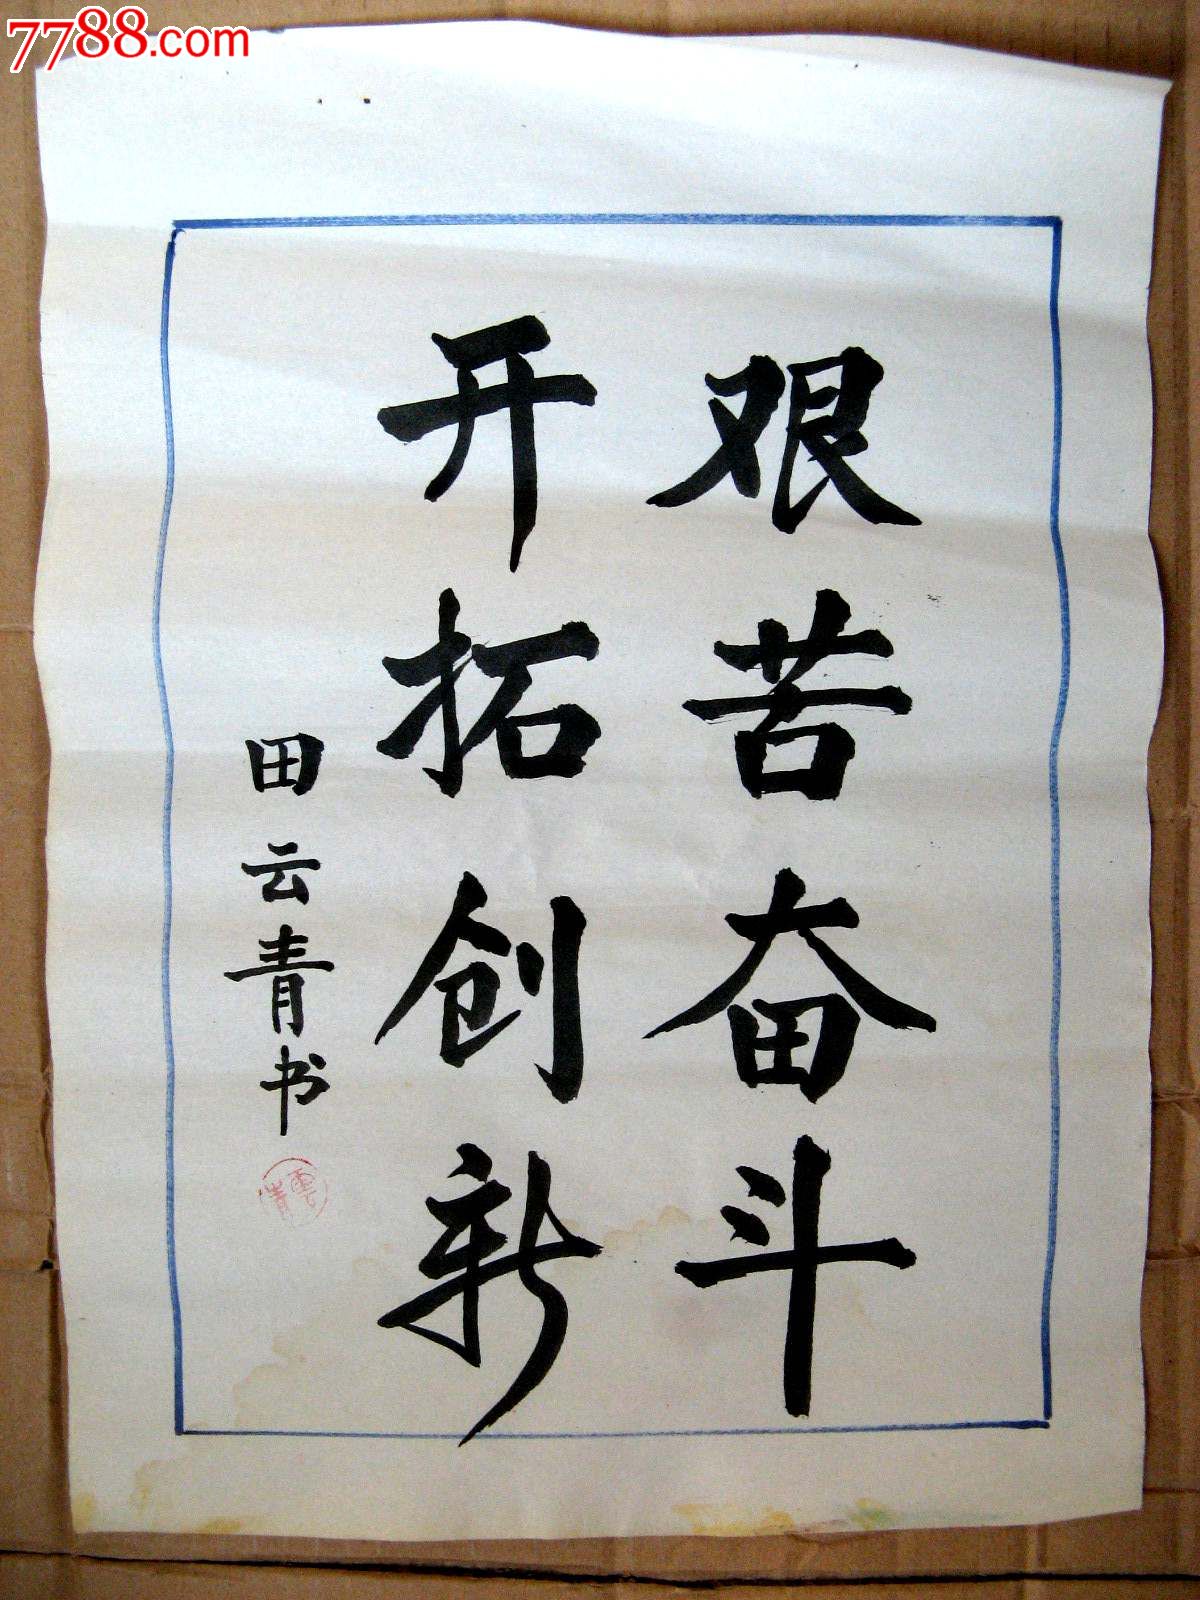 7788.com
艰苦奋斗
开拓创新
田云青书